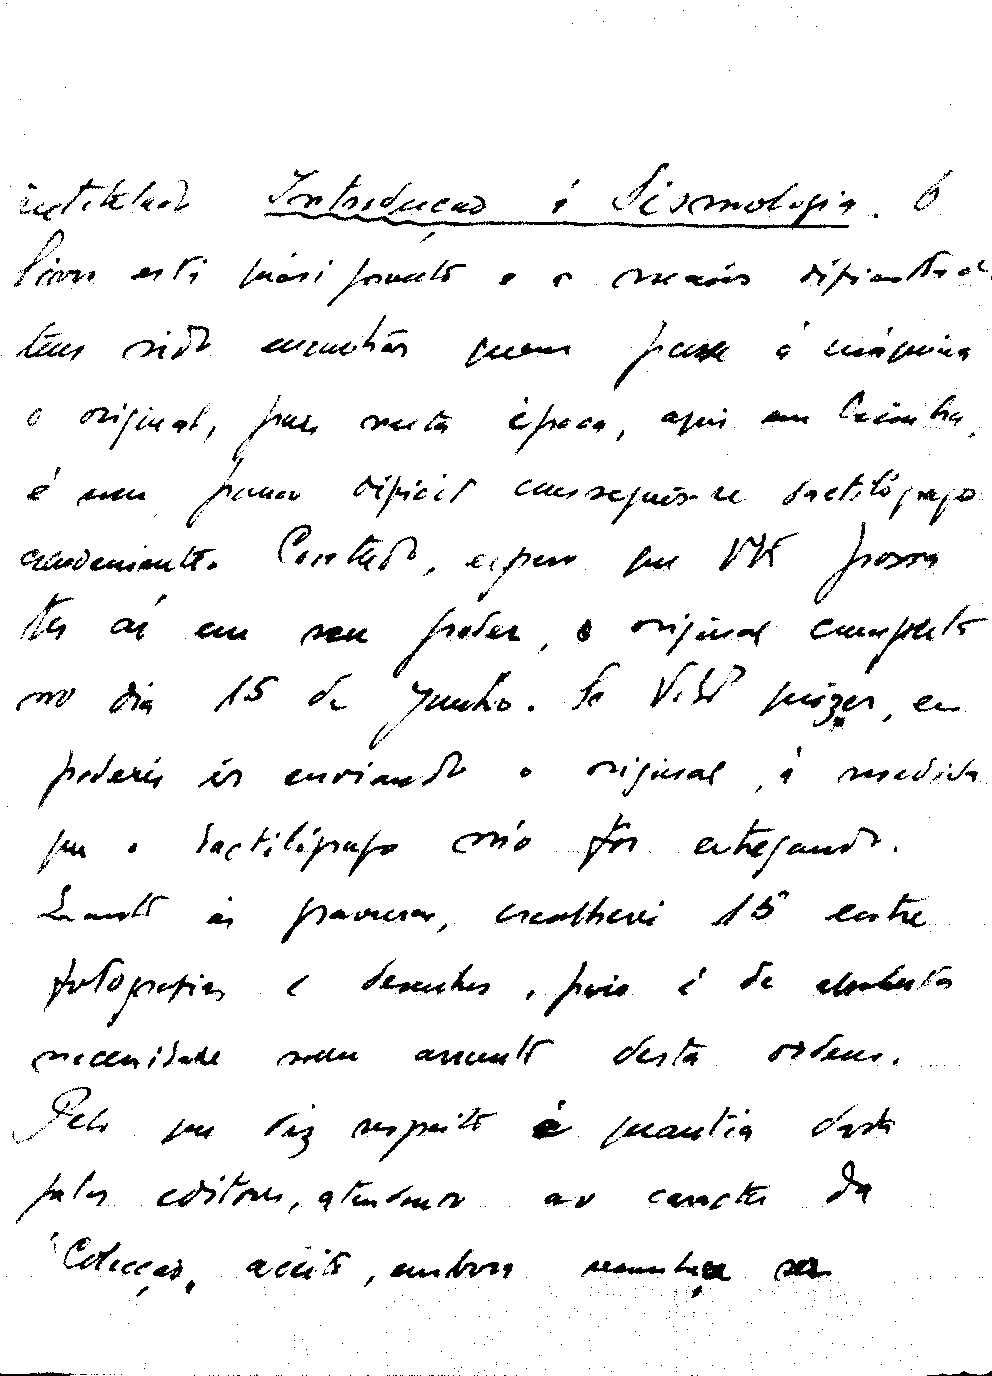 intitulado Introdução á Sismologia. O
livro está quási pronto e a maior dificuldade
tem sido encontrar quem passe á máquina
o original, pois nesta época, aqui em Coimbra,
é um pouco difícil conseguir-se dactilógrafo
. Contudo, espero que possa
ter aí em seu poder, o original completo
no dia 15 de Junho. Se quizer, eu
poderei ir enviando o original, á medida
que o dactilógrafo mo fôr entregando.
Quanto ás gravuras, escolherei 15 entre
fotografias e desenhos, pois é de absoluta
necessidade num assunto desta ordem.
Pelo que diz respeito á quantia dada
pelos editores, atendendo ao caracter da
"Colecção", aceito, embora reconheça ser